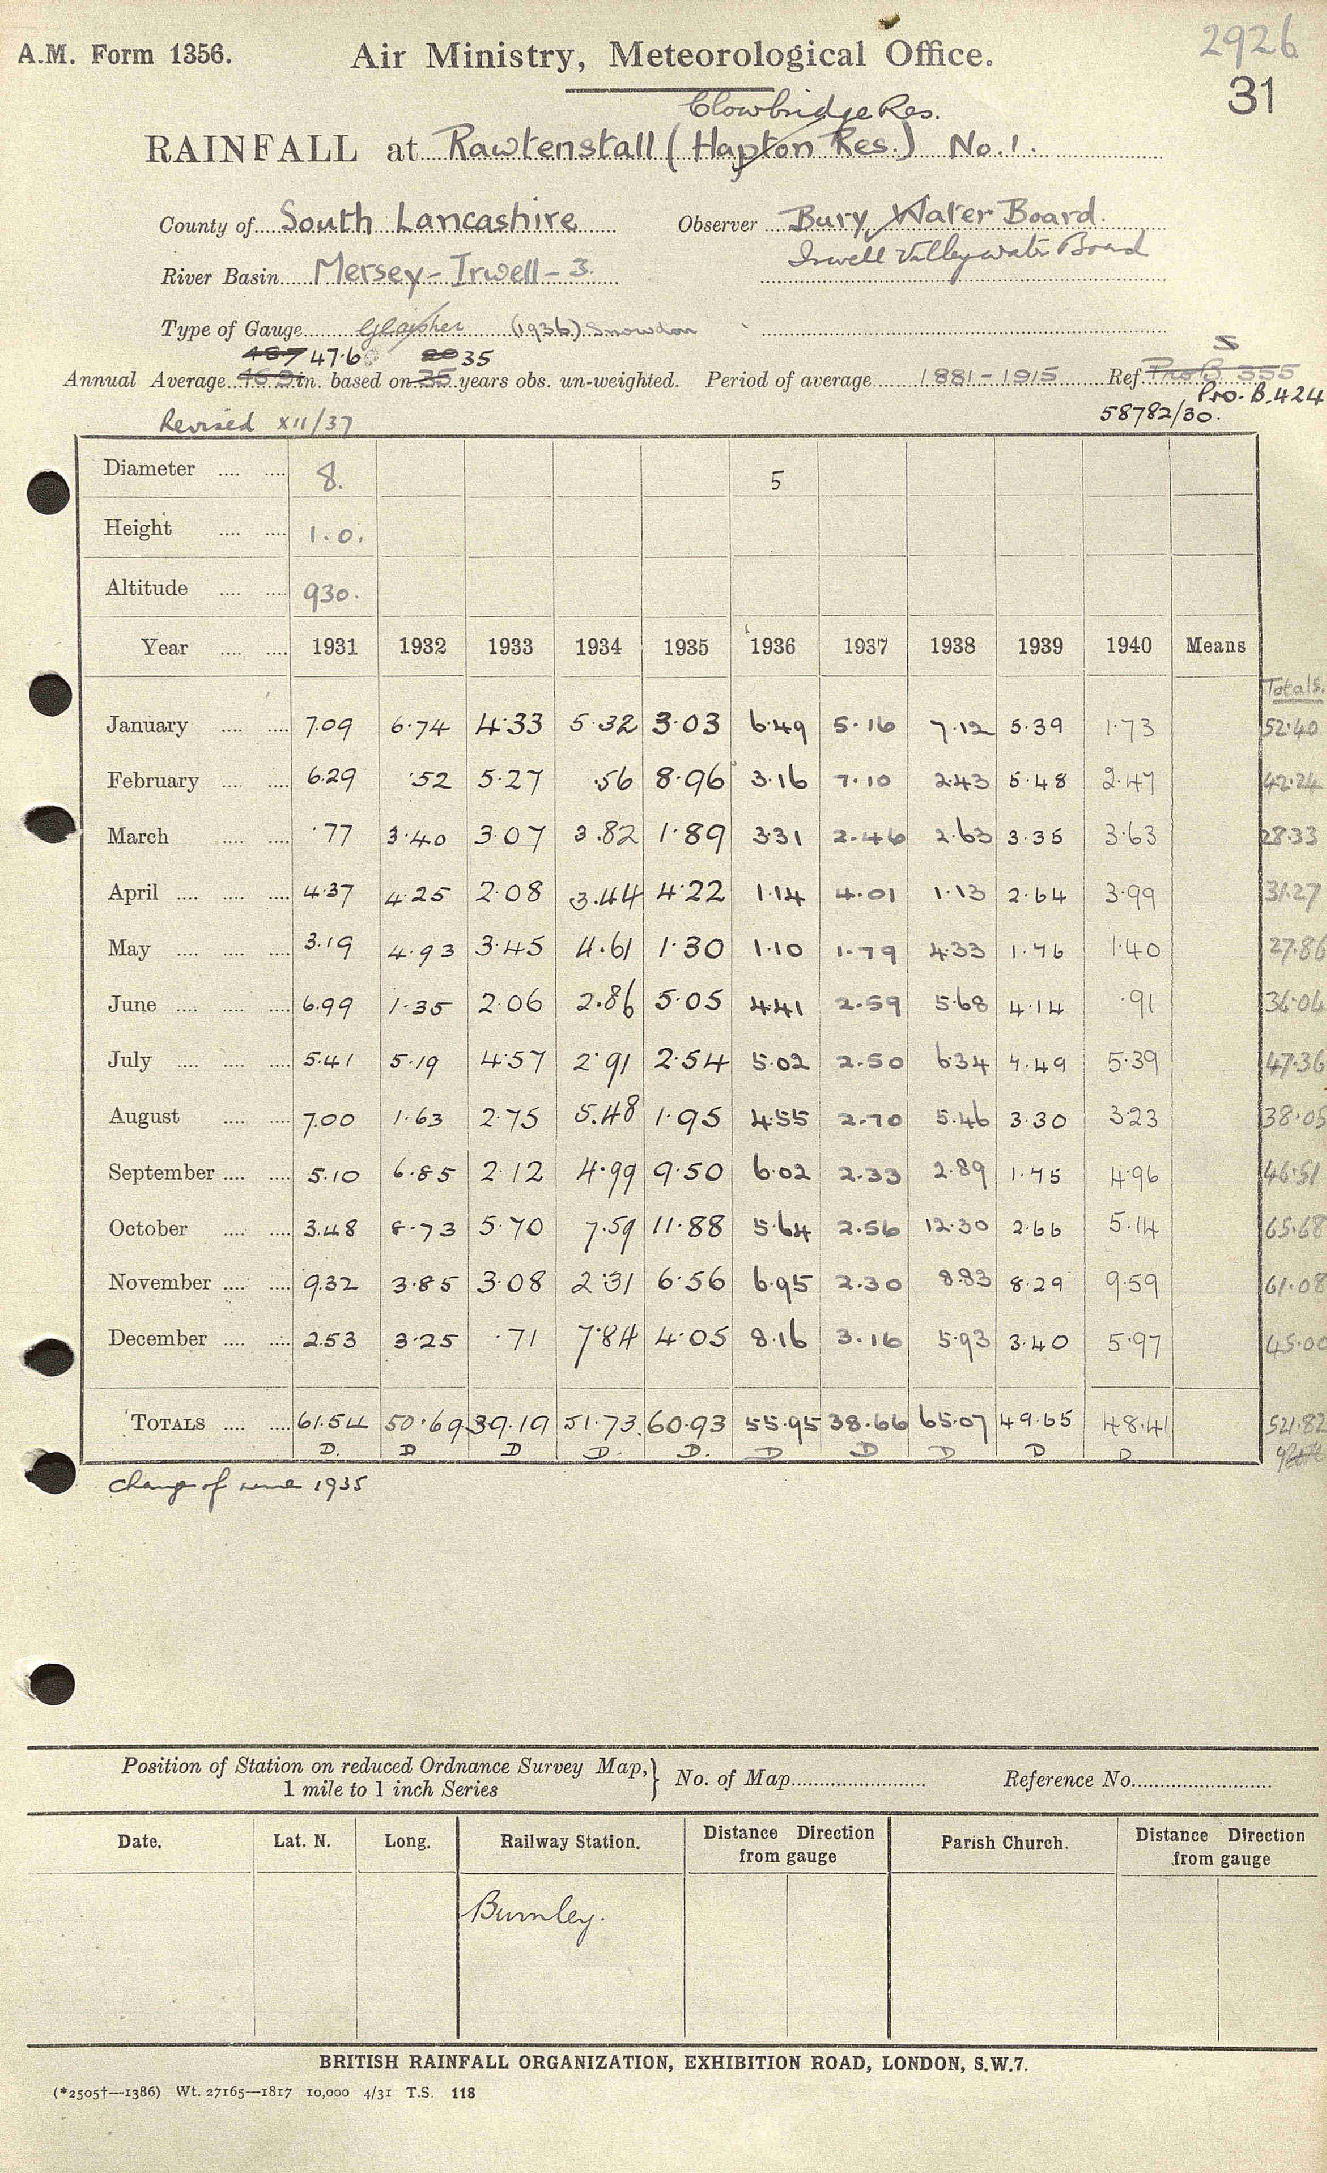 2926
A.M. Form 1356. Air Ministry, Meteorological Office.
31
Clowbridge Res.
RAINFALL at Rawtenstall (Hapton Res.) No. 1.
County of South Lancashire Observer Bury Water Board.
Irwell Valley water Board
River Basin Mersey-Irwell-3.
Type of Gauge Glaisher (1936) Snowdon
48.7 47.6 20 35 S
Annual Average 46.9 in. based on 35 years obs. un-weighted. Period of average 1881-1915 Ref. Pro B 355
Pro. B. 424
Revised XII/37 58782/30.
Diameter 8. 5
Height 1.0.
Altitude 930.
Year 1931 1932 1933 1934 1935 1936 1937 1938 1939 1940 Means
Totals.
January 7.09 6.74 4.33 5.32 3.03 6.49 5.16 7.12 5.39 1.73 52.40
February 6.29 .52 5.27 .56 8.96 3.16 7.10 2.43 5.48 2.47 42.24
March .77 3.40 3.07 3.82 1.89 3.31 2.46 2.63 3.35 3.63 28.33
April 4.37 4.25 2.08 3.44 4.22 1.14 4.01 1.13 2.64 3.99 31.27
May 3.19 4.93 3.45 4.61 1.30 1.10 1.79 4.33 1.76 1.40 27.86
June 6.99 1.35 2.06 2.86 5.05 4.41 2.59 5.68 4.14 .91 36.04
July 5.41 5.19 4.57 2.91 2.54 5.02 2.50 6.34 7.49 5.39 47.36
August 7.00 1.63 2.75 5.48 1.95 4.55 2.70 5.46 3.30 3.23 38.05
September 5.10 6.85 2.12 4.99 9.50 6.02 2.33 2.89 1.75 4.96 46.51
October 3.48 8.73 5.70 7.59 11.88 5.64 2.56 12.30 2.66 5.14 65.68
November 9.32 3.85 3.08 2.31 6.56 6.95 2.30 8.83 8.29 9.59 61.08
December 2.53 3.25 .71 7.84 4.05 8.16 3.16 5.93 3.40 5.97 45.00
TOTALS 61.54 50.69 39.19 51.73 60.93 55.95 38.66 65.07 49.65 48.41 521.82
D. D D D. D. D D D D D
Change of 1935
Position of Station on reduced Ordnance Survey Map,
1 mile to 1 inch Series } No. of Map Reference No.
Date. Lat. N. Long. Railway Station. Distance Direction from gauge Parish Church. Distance Direction from gauge
Burnley.
BRITISH RAINFALL ORGANIZATION, EXHIBITION ROAD, LONDON, S.W.7.
(*2505†—1386) Wt. 27165—1817 10,000 4/31 T.S. 118